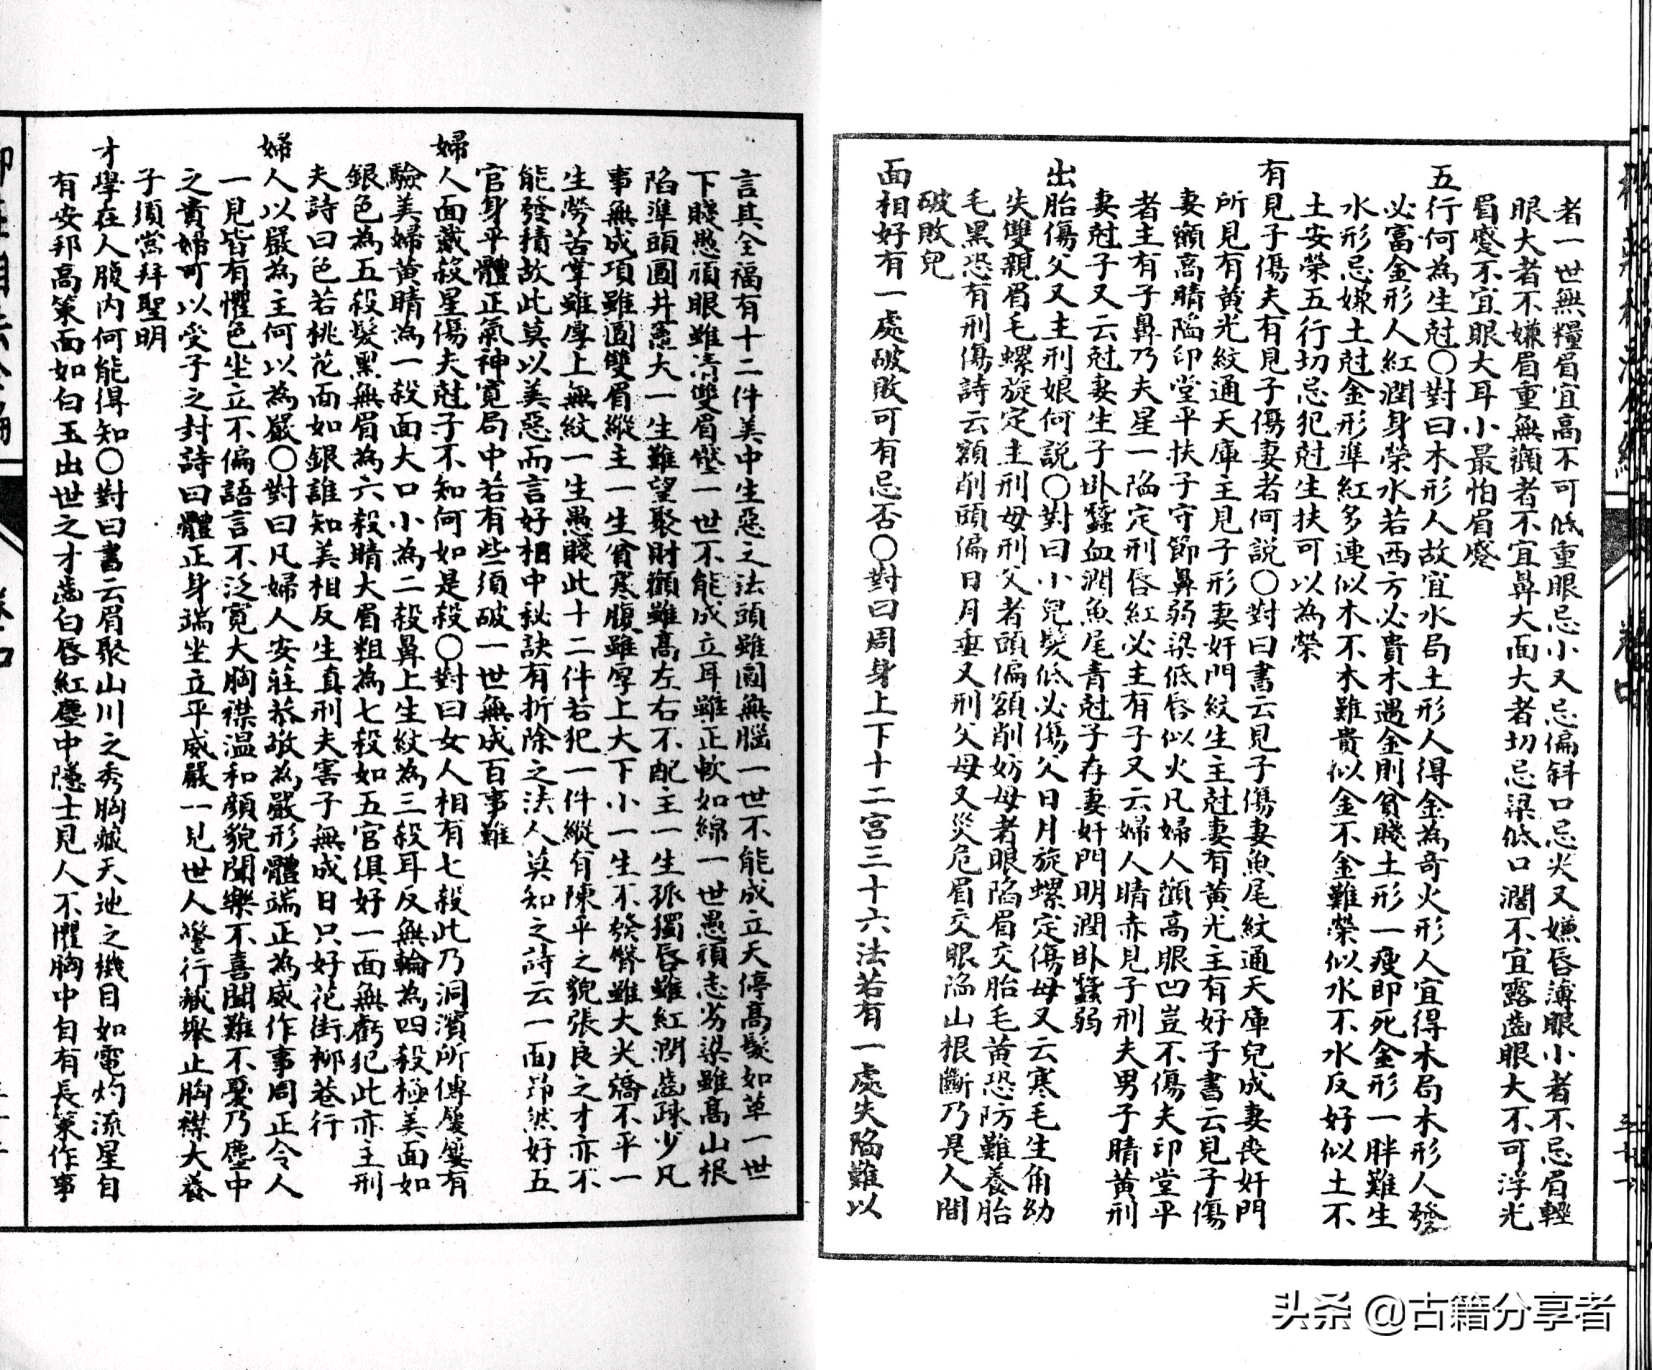 者一世無糧眉宜高不可低重眼忌小又忌偏斜口忌尖又嫌唇薄眼小者不忌眉輕
眼大者不嫌眉重無顴者不宜鼻大面大者切忌梁低口濶不宜露齒眼大不可浮光
眉蹙不宜眼大耳小最怕眉蹙
五行何為生尅〇對曰木形人故宜水局土形人得金為奇火形人宜得木局木形人發
必富金形人紅潤身榮水若西方必貴木遇金則貧賤土形一瘦即死金形一胖難生
水形忌嫌土尅金形準紅多連似木不木難貴似金不金難榮似水不水反好似土不
土安榮五行切忌犯尅生扶可以為榮
有見子傷夫有見子傷妻者何説〇對曰書云見子傷妻魚尾紋通天庫兒成妻喪奸門
所見有黃光紋通天庫主見子形妻奸門紋生主尅妻有黃光主有好子書云見子傷
妻顴高睛陷印堂平扶子守節鼻弱梁低唇似火凡婦人顴高眼凹豈不傷夫印堂平
者主有子鼻乃夫星一陷定刑唇紅必主有子又云婦人睛赤見子刑夫男子睛黃刑
妻尅子又云尅妻生子卧蠶血潤魚尾青尅子存妻奸門明潤卧蠶弱
出胎傷父又主刑娘何説〇對曰小兒髮低必傷父日月旋螺定傷母又云寒毛生角幼
失雙親眉毛螺旋定主刑母刑父者頭偏額削妨母者眼陷眉交胎毛黃恐防難養胎
毛黑恐有刑傷詩云額削頭偏日月垂又刑父母又災危眉交眼陷山根斷乃是人間
破敗兒
面相好有一處破敗可有忌否〇對曰周身上下十二宮三十六法若有一處失陷難以
言其全福有十二件美中生惡之法頭雖圓無腦一世不能成立天停高髮如草一世
下賤愚頑眼雖清雙眉壓一世不能成立耳雖正軟如綿一世愚頑志劣梁雖高山根
陷準頭圓井竈大一生難望聚財顴雖高左右不配主一生孤獨唇雖紅潤齒疎少凡
事無成項雖圓雙眉縱主一生貧寒腹雖厚上大下小一生不發臀雖大尖矯不平一
生勞苦掌雖厚上無紋一生愚賤此十二件若犯一件縱有陳平之貌張良之才亦不
能發積故此莫以美惡而言好相中秘訣有折除之法人莫知之詩云一面昂然好五
官身平體正氣神寬局中若有些須破一世無成百事難
婦人面藏殺星傷夫尅子不知何如是殺〇對曰女人相有七殺此乃洞濱所傳屢屢有
驗美婦黃睛為一殺面大口小為二殺鼻上生紋為三殺耳反無輪為四殺極美面如
銀色為五殺髮黑無眉為六殺睛大眉粗為七殺如五官俱好一面無虧犯此亦主刑
夫詩曰色若桃花面如銀誰知美相反生真刑夫害子無成日只好花街柳巷行
婦人以嚴為主何以為嚴〇對曰凡婦人安莊恭敬為嚴形體端正為威作事周正令人
一見皆有懼色坐立不偏語言不泛寬大胸襟温和顏貌聞樂不喜聞難不憂乃塵中
之貴婦可以受子之封詩曰體正身端坐立平威嚴一見世人驚行藏舉止胸襟大養
子須當拜聖明
才學在人腹内何能得知〇對曰書云眉聚山川之秀胸藏天地之機目如電灼流星自
有安邦高策面如白玉出世之才齒白唇紅塵中隱士見人不懼胸中自有長策作事
头条 @古籍分享者